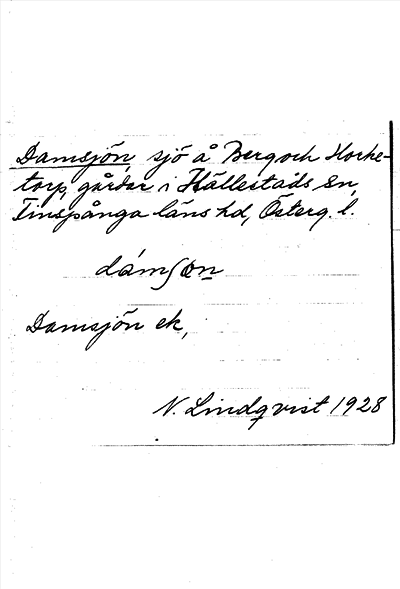 Damsjön, sjö å Berg och Horke-
torp, gårdar i Hällestads sn,
Finspånga läns hd, Österg. l.
dámʃøn
Damsjön ek,
N. Lindqvist 1928